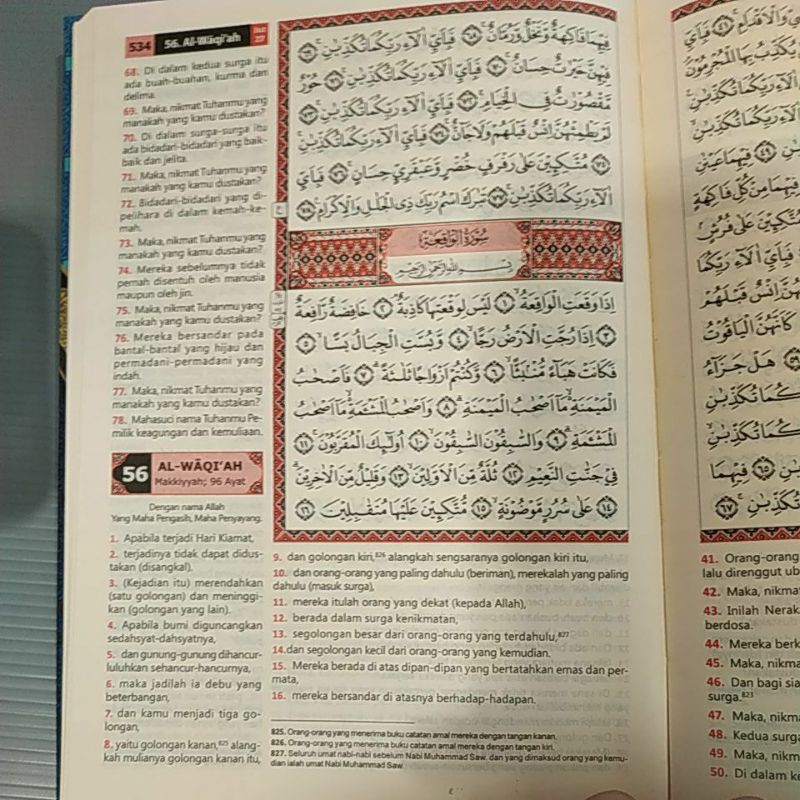 534 56. Al-Wāqi'ah Juz 27
68. Di dalam kedua surga itu
ada buah-buahan, kurma dan
delima.
69. Maka, nikmat Tuhanmu yang
manakah yang kamu dustakan?
70. Di dalam surga-surga itu
ada bidadari-bidadari yang baik-
baik dan jelita.
71. Maka, nikmat Tuhanmu yang
manakah yang kamu dustakan?
72. Bidadari-bidadari yang di-
pelihara di dalam kemah-ke-
mah.
73. Maka, nikmat Tuhanmu yang
manakah yang kamu dustakan?
74. Mereka sebelumnya tidak
pernah disentuh oleh manusia
maupun oleh jin.
75. Maka, nikmat Tuhanmu yang
manakah yang kamu dustakan?
76. Mereka bersandar pada
bantal-bantal yang hijau dan
permadani-permadani yang
indah.
77. Maka, nikmat Tuhanmu yang
manakah yang kamu dustakan?
78. Mahasuci nama Tuhanmu Pe-
milik keagungan dan kemuliaan.
56 AL-WĀQI'AH
Makkiyyah; 96 Ayat
Dengan nama Allah
Yang Maha Pengasih, Maha Penyayang.
1. Apabila terjadi Hari Kiamat,
2. terjadinya tidak dapat didus-
takan (disangkal).
3. (Kejadian itu) merendahkan
(satu golongan) dan meninggi-
kan (golongan yang lain).
4. Apabila bumi diguncangkan
sedahsyat-dahsyatnya,
5. dan gunung-gunung dihancur-
luluhkan sehancur-hancurnya,
6. maka jadilah ia debu yang
beterbangan,
7. dan kamu menjadi tiga go-
longan,
8. yaitu golongan kanan,825 alang-
kah mulianya golongan kanan itu,
فِيهِمَا فَاكِهَةٌ وَنَخْلٌ وَرُمَّانٌ ۚ ٦٨ فَبِأَيِّ اٰلَاۤءِ رَبِّكُمَا تُكَذِّبٰنِ ٦٩
فِيهِنَّ خَيْرٰتٌ حِسَانٌ ٧٠ فَبِأَيِّ اٰلَاۤءِ رَبِّكُمَا تُكَذِّبٰنِ ٧١ حُوْرٌ
مَّقْصُوْرٰتٌ فِى الْخِيَامِ ٧٢ فَبِأَيِّ اٰلَاۤءِ رَبِّكُمَا تُكَذِّبٰنِ ٧٣
لَمْ يَطْمِثْهُنَّ اِنْسٌ قَبْلَهُمْ وَلَا جَاۤنٌّ ٧٤ فَبِأَيِّ اٰلَاۤءِ رَبِّكُمَا تُكَذِّبٰنِ
٧٥ مُتَّكِـِٕيْنَ عَلٰى رَفْرَفٍ خُضْرٍ وَّعَبْقَرِيٍّ حِسَانٍ ٧٦ فَبِأَيِّ
اٰلَاۤءِ رَبِّكُمَا تُكَذِّبٰنِ ٧٧ تَبٰرَكَ اسْمُ رَبِّكَ ذِى الْجَلٰلِ وَالْاِكْرَامِ ٧٨
سُوْرَةُ الْوَاقِعَةِ
بِسْمِ اللّٰهِ الرَّحْمٰنِ الرَّحِيْمِ
اِذَا وَقَعَتِ الْوَاقِعَةُ ١ لَيْسَ لِوَقْعَتِهَا كَاذِبَةٌ ٢ خَافِضَةٌ رَّافِعَةٌ
٣ اِذَا رُجَّتِ الْاَرْضُ رَجًّا ٤ وَّبُسَّتِ الْجِبَالُ بَسًّا ٥
فَكَانَتْ هَبَاۤءً مُّنْۢبَثًّا ٦ وَّكُنْتُمْ اَزْوَاجًا ثَلٰثَةً ٧ فَاَصْحٰبُ
الْمَيْمَنَةِ مَآ اَصْحٰبُ الْمَيْمَنَةِ ٨ وَاَصْحٰبُ الْمَشْـَٔمَةِ مَآ اَصْحٰبُ
الْمَشْـَٔمَةِ ٩ وَالسّٰبِقُوْنَ السّٰبِقُوْنَ ١٠ اُولٰۤىِٕكَ الْمُقَرَّبُوْنَ ١١
فِيْ جَنّٰتِ النَّعِيْمِ ١٢ ثُلَّةٌ مِّنَ الْاَوَّلِيْنَ ١٣ وَقَلِيْلٌ مِّنَ الْاٰخِرِيْنَ
١٤ عَلٰى سُرُرٍ مَّوْضُوْنَةٍ ١٥ مُّتَّكِـِٕيْنَ عَلَيْهَا مُتَقٰبِلِيْنَ ١٦
9. dan golongan kiri,826 alangkah sengsaranya golongan kiri itu,
10. dan orang-orang yang paling dahulu (beriman), merekalah yang paling
dahulu (masuk surga),
11. mereka itulah orang yang dekat (kepada Allah),
12. berada dalam surga kenikmatan,
13. segolongan besar dari orang-orang yang terdahulu,827
14.dan segolongan kecil dari orang-orang yang kemudian.
15. Mereka berada di atas dipan-dipan yang bertatahkan emas dan per-
mata,
16. mereka bersandar di atasnya berhadap-hadapan.
825. Orang-orang yang menerima buku catatan amal mereka dengan tangan kanan.
826. Orang-orang yang menerima buku catatan amal mereka dengan tangan kiri.
827. Seluruh umat nabi-nabi sebelum Nabi Muhammad Saw. dan yang dimaksud orang yang kemu-
dian ialah umat Nabi Muhammad Saw.
41. Orang-orang
lalu direnggut ub
42. Maka, nikma
43. Inilah Nerak
berdosa.
44. Mereka berk
45. Maka, nikma
46. Dan bagi sia
surga.823
47. Maka, nikm
48. Kedua surga
49. Maka, nikma
50. Di dalam ke